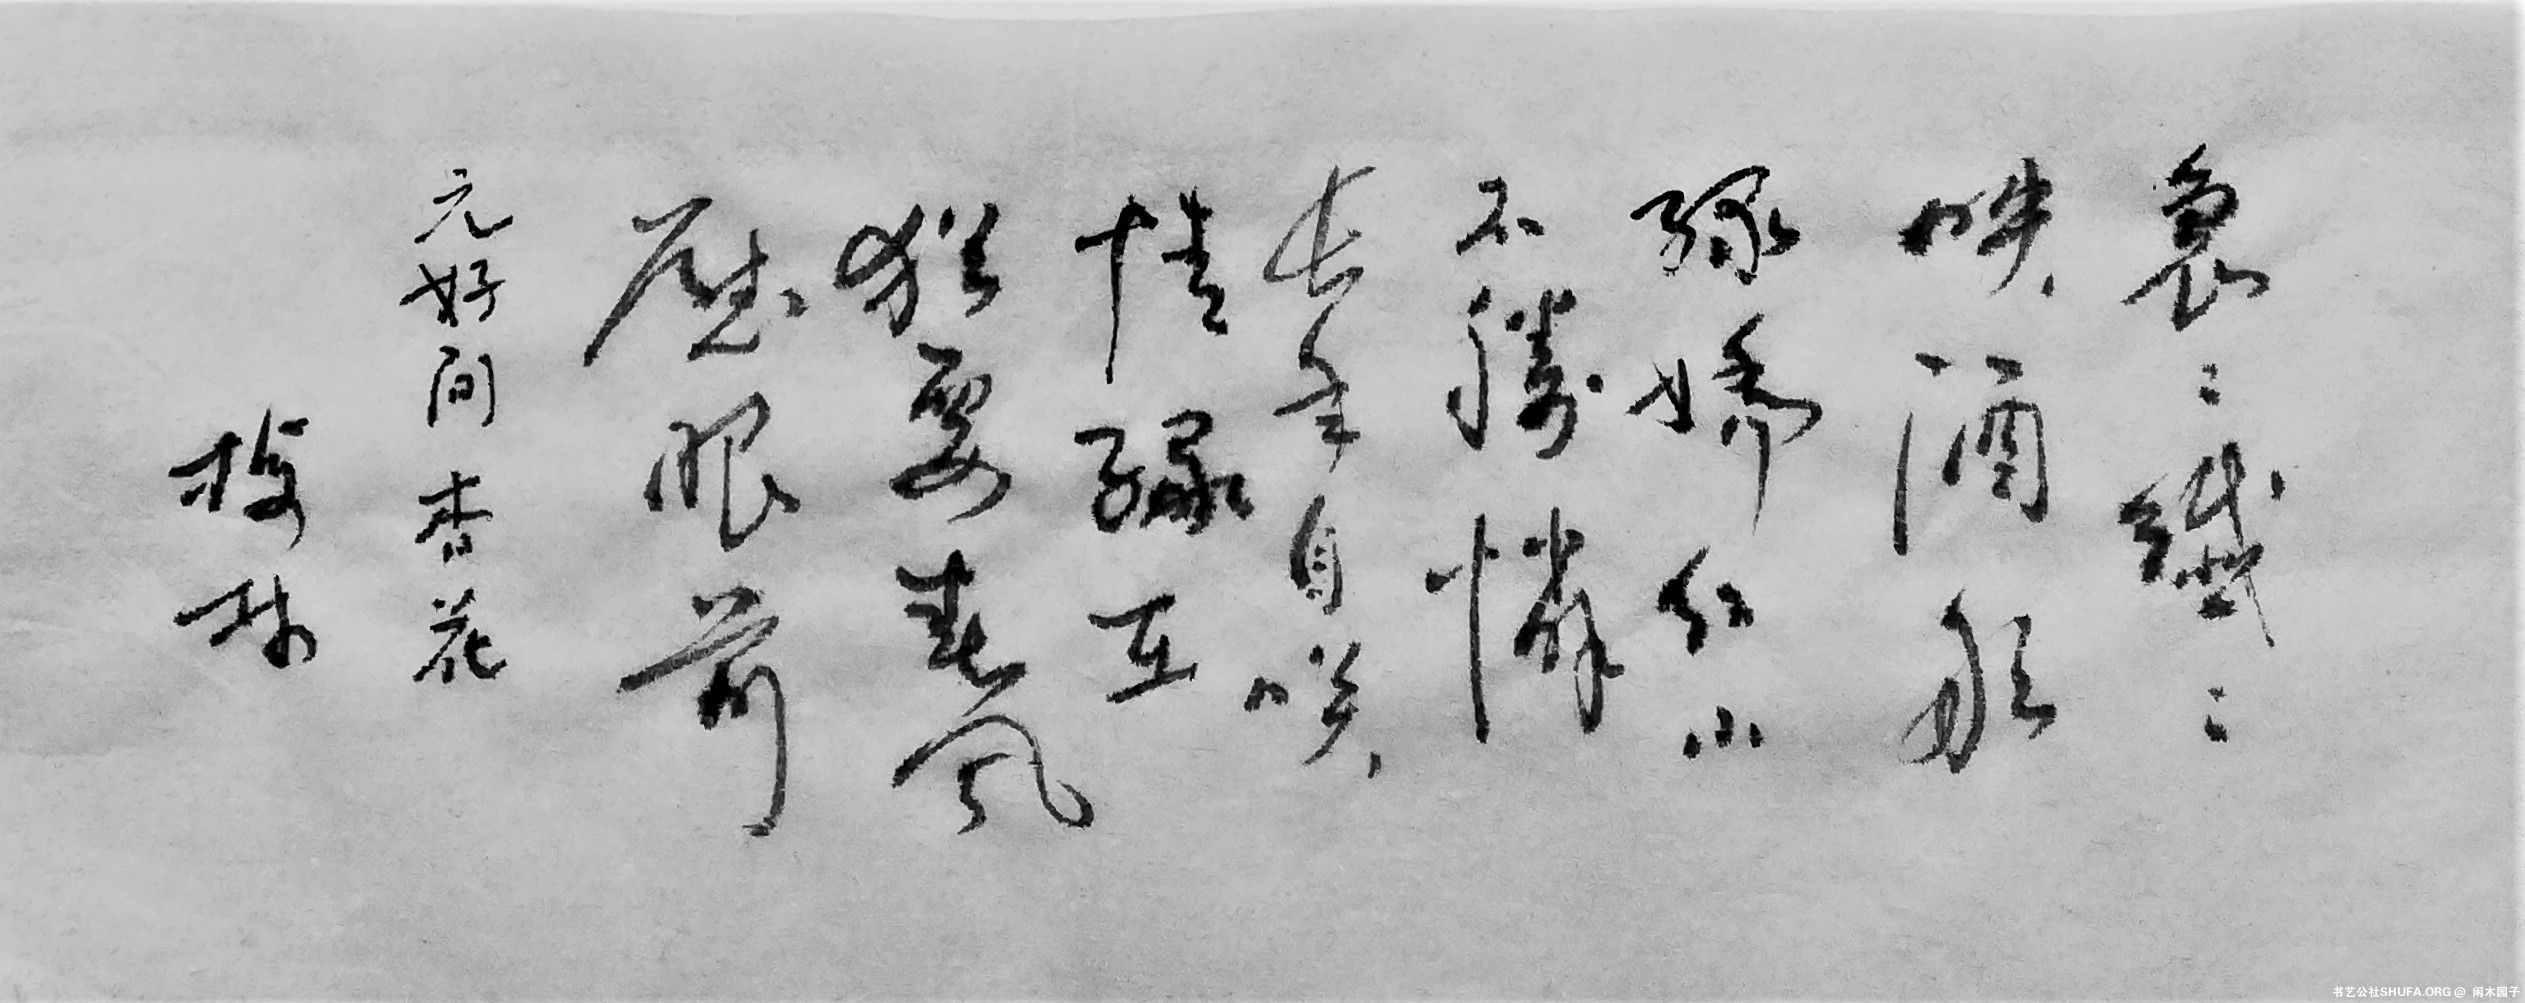 裊々纖々
映酒船
绿嬌红小
不勝憐
长年自咲
情緣在
猶要春風
慰眼前
元好问杏花
书艺公社SHUFA.ORG @ 闲木园子